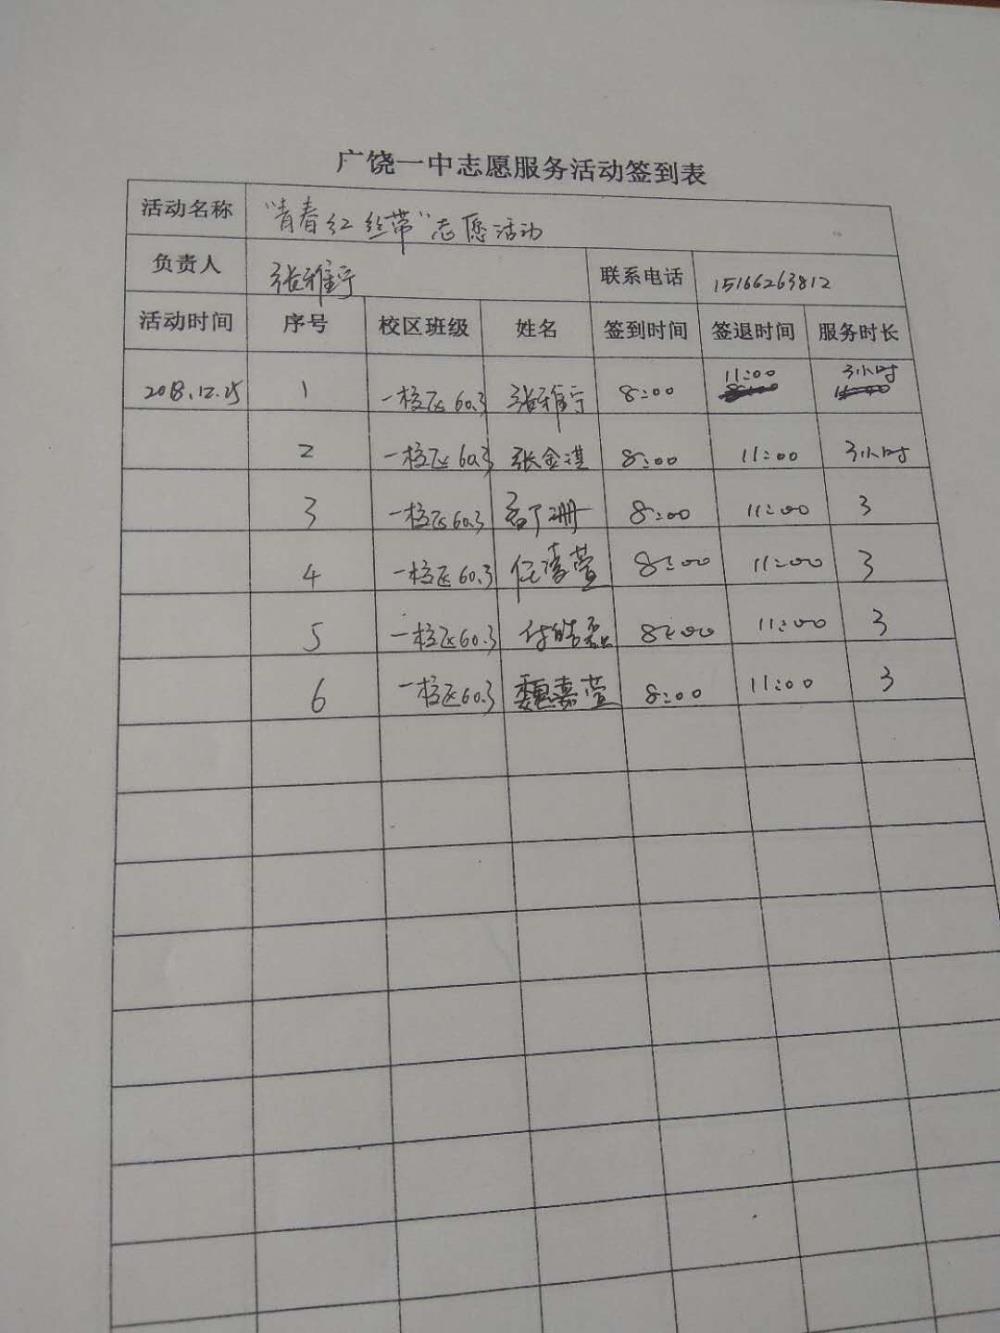 广饶一中志愿服务活动签到表
活动名称 "青春红丝带"志愿活动
负责人 张雅宁 联系电话 15166263812
活动时间 序号 校区班级 姓名 签到时间 签退时间 服务时长
2018.12.25 1 一校区60.3 张雅宁 8:00 11:00 3小时
2 一校区60.3 张金淇 8:00 11:00 3小时
3 一校区60.3 8:00 11:00 3
4 一校区60.3 任清萱 8:00 11:00 3
5 一校区60.3 8:00 11:00 3
6 一校区60.3 魏嘉萱 8:00 11:00 3